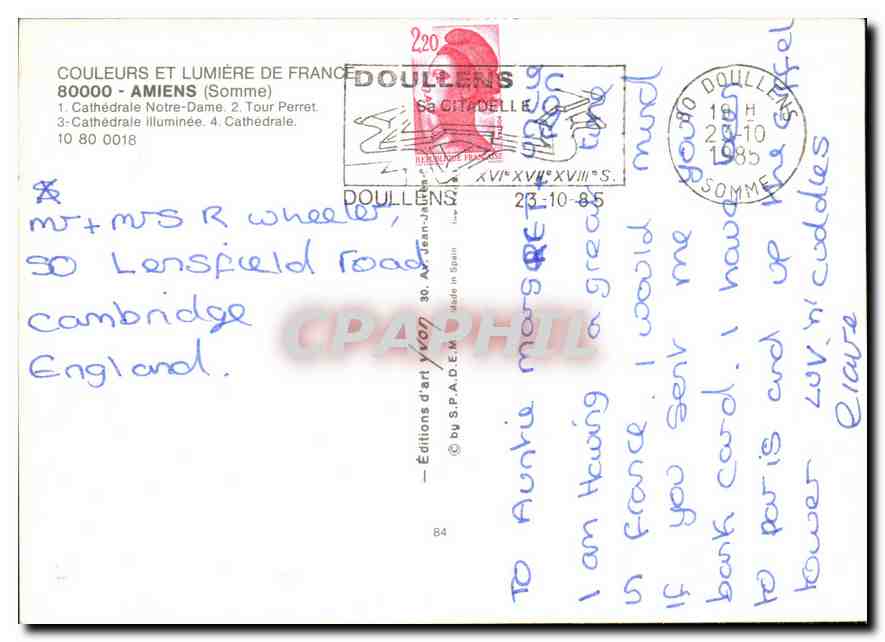 COULEURS ET LUMIÈRE DE FRANCE
80000 - AMIENS (Somme)
1. Cathédrale Notre-Dame. 2. Tour Perret.
3-Cathédrale illuminée. 4. Cathédrale.
10 80 0018
2,20
REPUBLIQUE FRANÇAISE
DOULLENS
Sa CITADELLE
XVIe XVIIe XVIIIe S.
DOULLENS 23-10-85
80 DOULLENS
19 H
23-10
1985
SOMME
Mr + Mrs R Wheeler,
50 Lensfield road
Cambridge
England.
— Éditions d'art yvon 30. Av. Jean-Jaurès
© by S.P.A.D.E.M. Made in Spain
84
CPAPHIL
TO Auntie margRET + uncle Ron
I am Having a great time
in france. I would mind
if you sent me your
bank card. I have been
to paris and up the effel
tower Luv n' cuddles
Claire